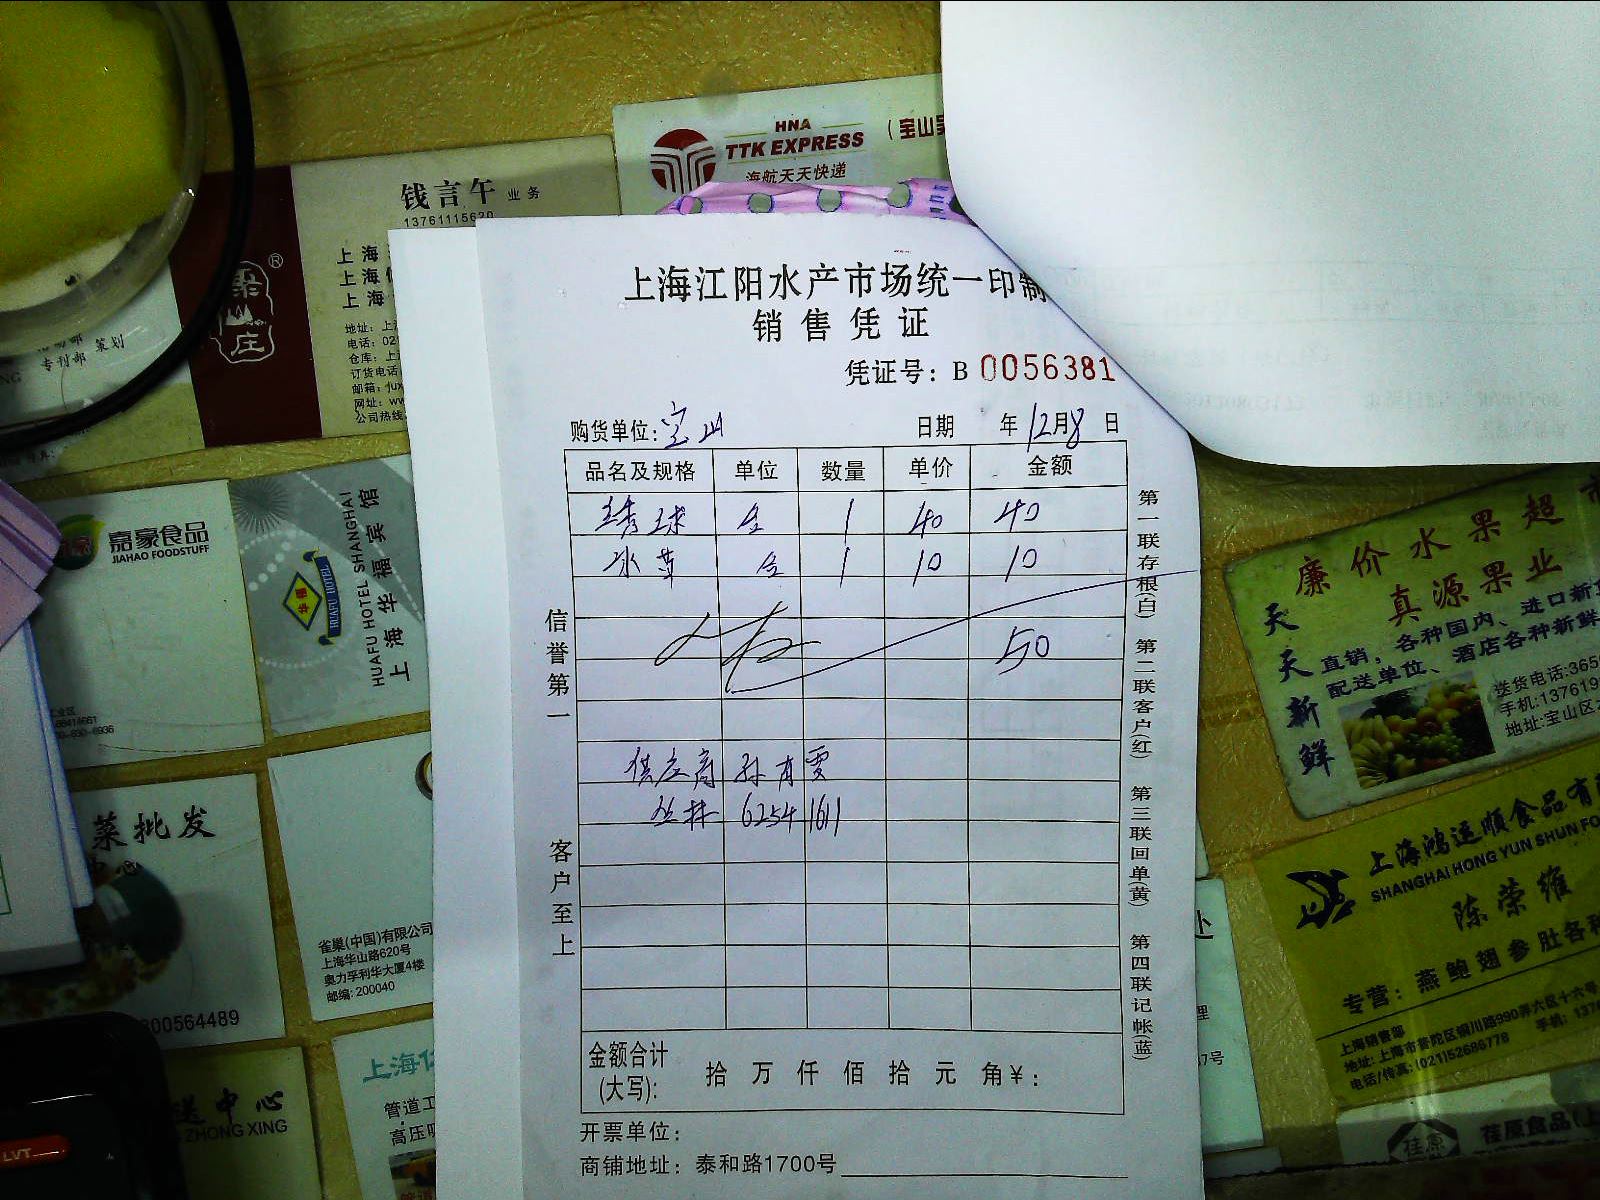 HNA
TTK EXPRESS
海航天天快递
(宝山
钱言午 业务
13761115620
上海
上海
上海
地址: 上
电话: 02
仓库: 上
订货电话
邮箱:
网址: ww
公司热线
庄
®
专刊部 策划
上海江阳水产市场统一印制
销售凭证
凭证号: B 0056381
购货单位: 宝山 日期 年 12月8日
品名及规格 单位 数量 单价 金额
绣球 1 40 40
水草 1 10 10
50
供应商 孙
6254 1611
金额合计
(大写): 拾 万 仟 佰 拾 元 角 ¥:
开票单位:
商铺地址: 泰和路1700号
信誉第一
客户至上
第一联存根(白) 第二联客户(红) 第三联回单(黄) 第四联记帐(蓝)
嘉豪食品
JIAHAO FOODSTUFF
华福
HUAFU HOTEL
HUAFU HOTEL SHANGHAI
上海华福宾馆
菜批发
中心
00564489
雀巢(中国)有限公司
上海华山路620号
奥力孚利华大厦4楼
邮编: 200040
送中心
ZHONG XING
LVT
上海
管道工
高压
廉价水果超市
真源果业
天天新鲜
直销, 各种国内、进口新
配送单位、酒店各种新鲜
送货电话:365
手机:137619
地址:宝山区
上海鸿运顺食品有
SHANGHAI HONG YUN SHUN FO
陈荣维
专营: 燕鲍翅参肚各种
上海销售部
地址: 上海市普陀区铜川路990弄六区十六号
电话/传真: (021)52686778 手机: 137
荏原
荏原食品(上